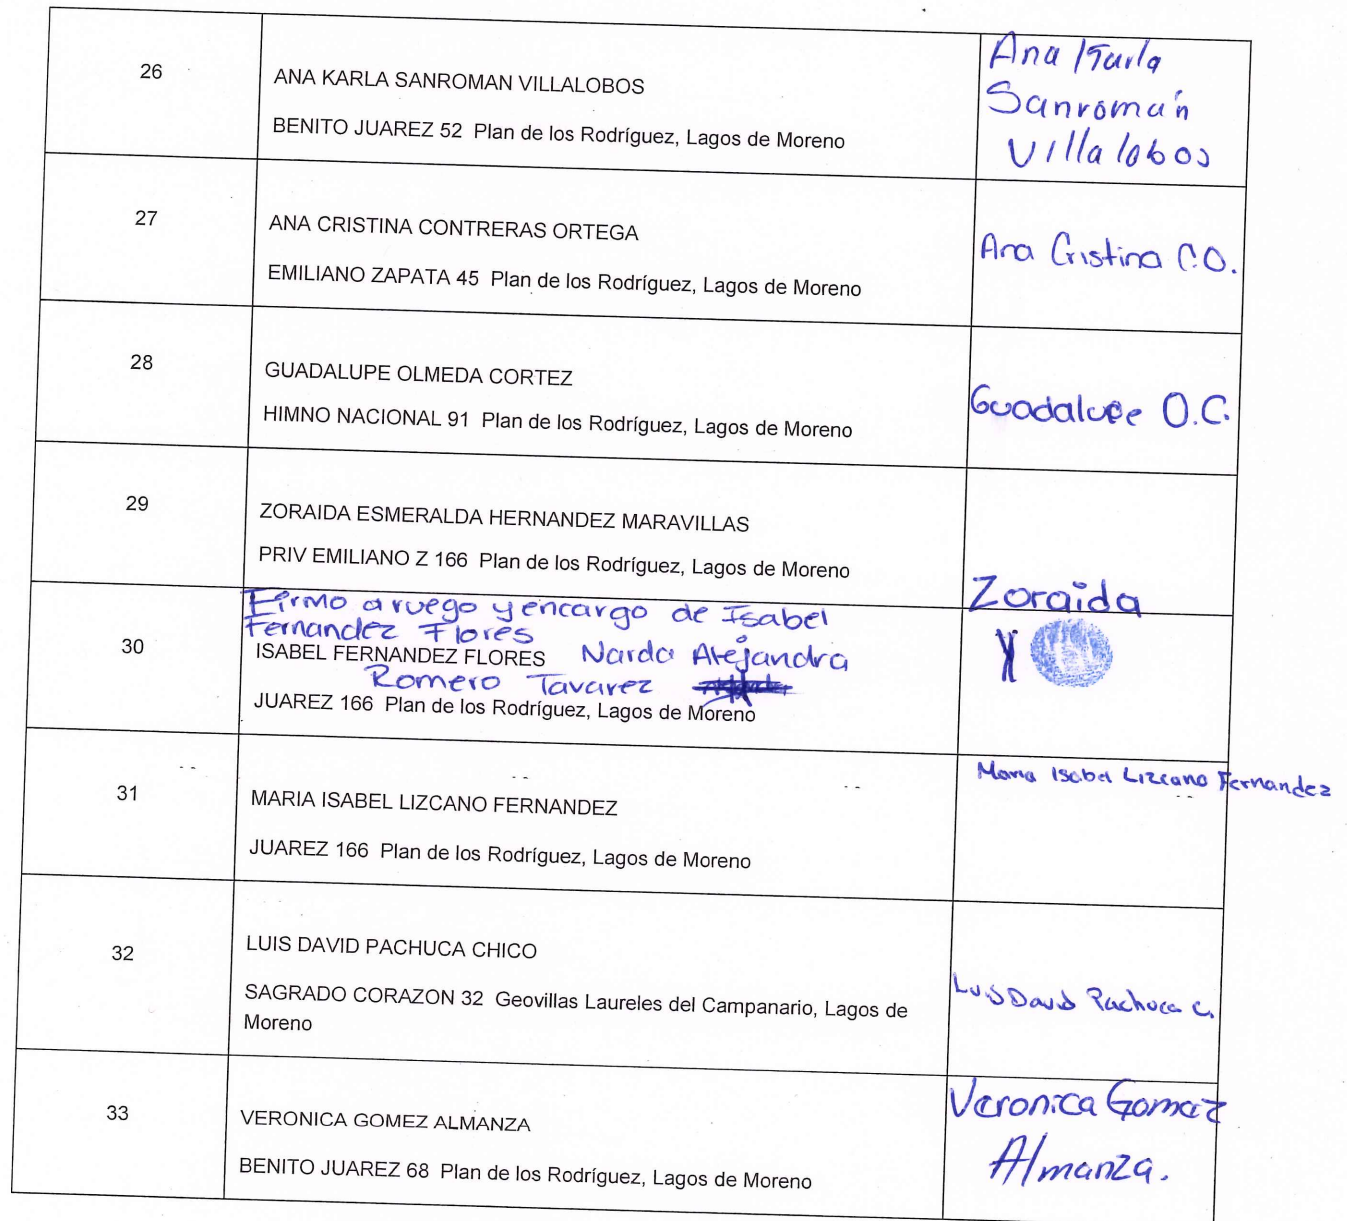 26
ANA KARLA SANROMAN VILLALOBOS
BENITO JUAREZ 52 Plan de los Rodríguez, Lagos de Moreno
Ana Karla
Sanromán
Villalobos
27
ANA CRISTINA CONTRERAS ORTEGA
EMILIANO ZAPATA 45 Plan de los Rodríguez, Lagos de Moreno
Ana Cristina C.O.
28
GUADALUPE OLMEDA CORTEZ
HIMNO NACIONAL 91 Plan de los Rodríguez, Lagos de Moreno
Guadalupe O.C.
29
ZORAIDA ESMERALDA HERNANDEZ MARAVILLAS
PRIV EMILIANO Z 166 Plan de los Rodríguez, Lagos de Moreno
Zoraida
30
Firmo a ruego y encargo de Isabel
Fernandez Flores
ISABEL FERNANDEZ FLORES Narda Alejandra
Romero Tavarez
JUAREZ 166 Plan de los Rodríguez, Lagos de Moreno
31
MARIA ISABEL LIZCANO FERNANDEZ
JUAREZ 166 Plan de los Rodríguez, Lagos de Moreno
Maria Isabel Lizcano Fernandez
32
LUIS DAVID PACHUCA CHICO
SAGRADO CORAZON 32 Geovillas Laureles del Campanario, Lagos de
Moreno
Luis David Pachuca C.
33
VERONICA GOMEZ ALMANZA
BENITO JUAREZ 68 Plan de los Rodríguez, Lagos de Moreno
Veronica Gomez
Almanza.